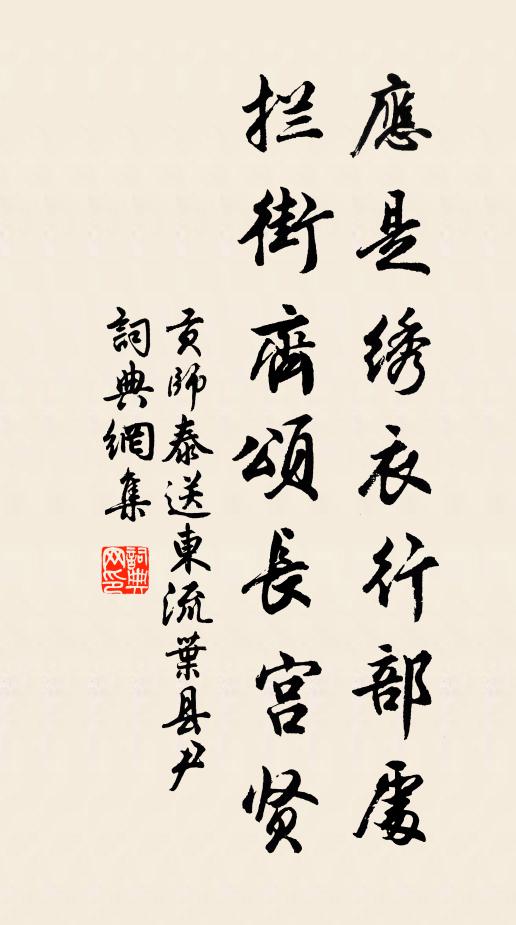 應是綉衣行部處
拦街齊頌長宫贤
贡師泰送東流葉县尹
詞典網集
詞典网印